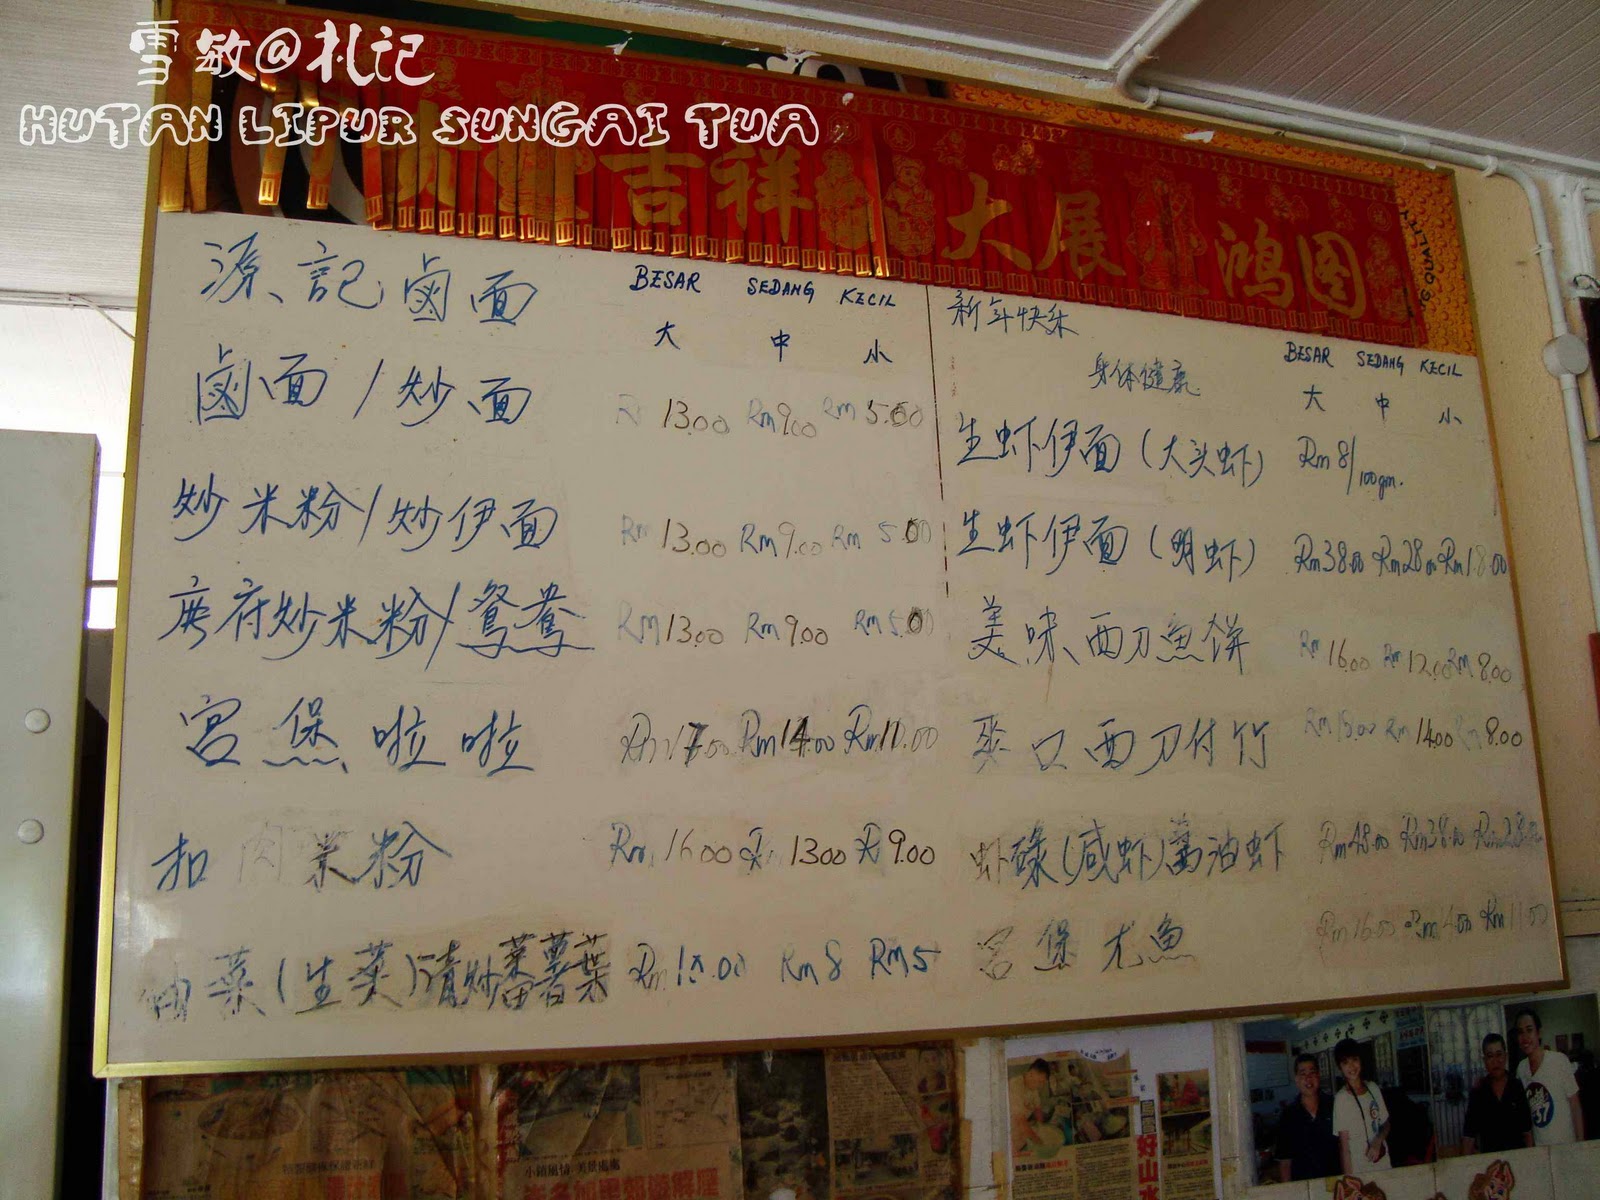 雪敏@札记
HUTAN LIPUR SUNGAI TUA
吉祥 大展鸿图
QUALITY
源記鹵面 BESAR SEDANG KECIL
大 中 小
鹵面/炒面 13.00 Rm9.00 Rm 5.00
炒米粉/炒伊面 Rm 13.00 Rm9.00 Rm 5.00
廣府炒米粉/鴛鴦 RM 13.00 Rm 9.00 Rm 5.00
宫保啦啦 Rm17.00 Rm14.00 Rm11.00
扣肉米粉 Rm 16.00 R 13.00 R 9.00
油菜(生菜)清炒番薯葉 Rm 10.00 Rm 8 Rm 5
新年快乐
身体健康
BESAR SEDANG KECIL
大 中 小
生虾伊面(大头虾) Rm 8/100gm.
生虾伊面(明虾) Rm38.00 Rm28.00 Rm18.00
美味西刀魚饼 Rm 16.00 Rm 12.00 Rm 8.00
爽口西刀付竹 Rm 18.00 Rm 14.00 Rm 8.00
虾碌(咸虾)萬油虾 Rm48.00 Rm38.00 Rm28.00
宫保尤魚 Rm16.00 Rm14.00 Rm11.00
小鎮風情 美景處處
好山水